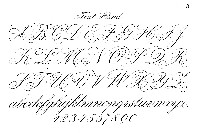 3
Text Hand.
A B C D E F G H I J
K L M N O P Q R
S T U V W X Y Z
abcdefghijklmnopqrstuvwxyz.
1 2 3 4 5 6 7 8 9 0